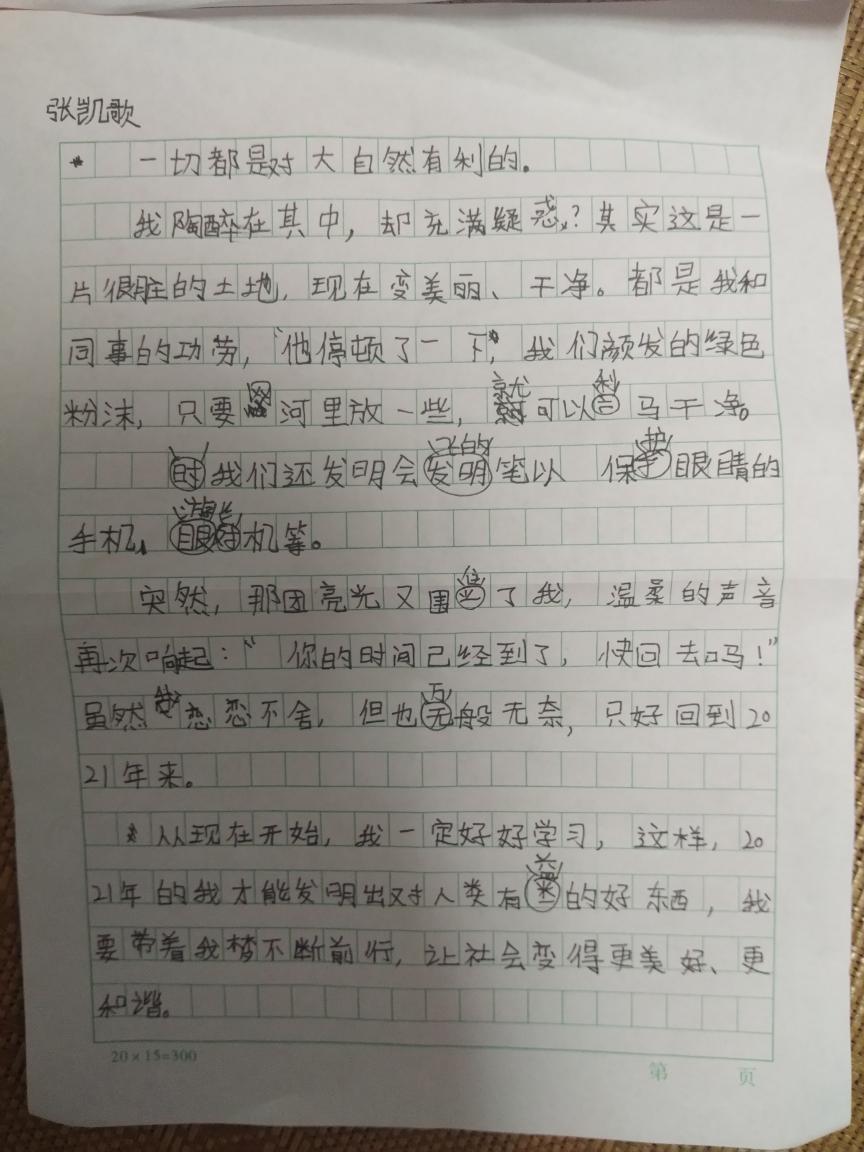 张凯歌
一切都是对大自然有利的。
我陶醉在其中，却充满疑惑？其实这是一
片很脏的土地，现在变美丽、干净。都是我和
同事的功劳，“他停顿了一下”，我们颜发的绿色
粉沫，只要 河里放一些，就可以 马干净。
时我们还发明会飞的发明笔以 保护眼睛的
手机、 眼 机等。
突然，那团亮光又围住了我，温柔的声音
再次响起：“你的时间己经到了，快回去吗！”
虽然 恋恋不舍，但也万无般无奈，只好回到20
21年来。
从现在开始，我一定好好学习，这样，20
21年的我才能发明出对人类有益的好东西，我
要带着我梦不断前行，让社会变得更美好、更
和谐。
20×15=300
第 页